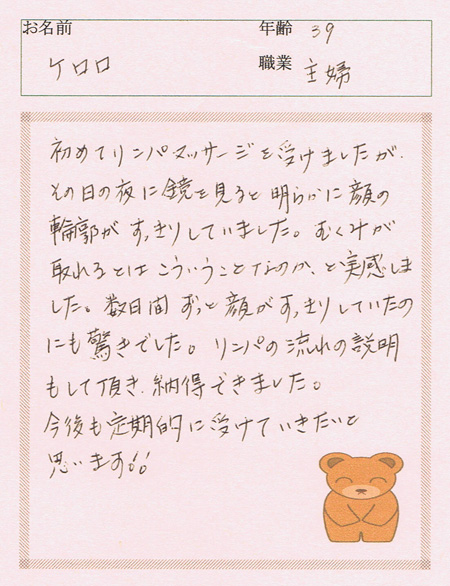 お名前
年齢 39
ケロロ
職業 主婦
初めてリンパマッサージを受けましたが、
その日の夜に鏡を見ると明らかに顔の
輪郭がすっきりしていました。むくみが
取れるとはこういうことなのか、と実感しま
した。数日間ずっと顔がすっきりしていたの
にも驚きでした。リンパの流れの説明
もして頂き、納得できました。
今後も定期的に受けていきたいと
思います!!